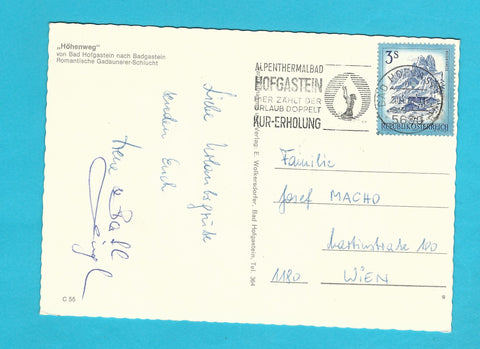 „Höhenweg"
von Bad Hofgastein nach Badgastein
Romantische Gadaunerer-Schlucht
ALPENTHERMALBAD
HOFGASTEIN
HIER ZÄHLT DER
URLAUB DOPPELT
KUR-ERHOLUNG
3S
REPUBLIK ÖSTERREICH
BAD HOFGASTEIN
5630
Liebe Urlaubsgrüße
senden Euch
Verlag: E. Wolkersdorfer, Bad Hofgastein, Tel. 364
Familie
Josef MACHO
Martinstraße 100
1180 WIEN
C 55
9